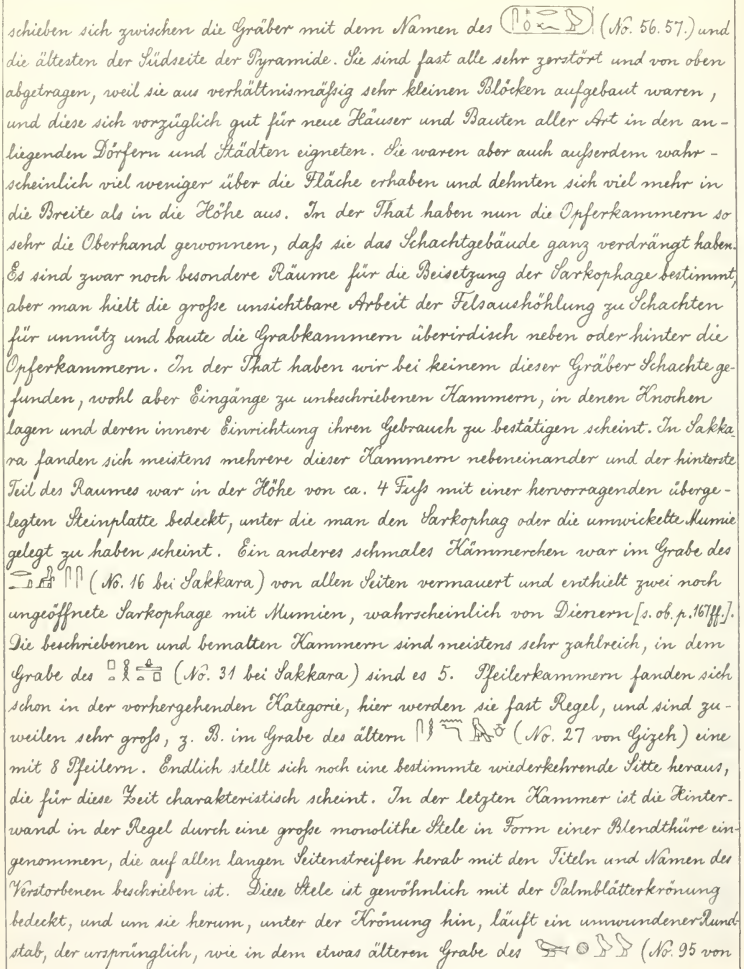 schieben sich zwischen die Gräber mit dem Namen des (No. 56. 57.) und
die ältesten der Südseite der Pyramide. Sie sind fast alle sehr zerstört und von oben
abgetragen, weil sie aus verhältnismäßig sehr kleinen Blöcken aufgebaut waren,
und diese sich vorzüglich gut für neue Häuser und Bauten aller Art in den an-
liegenden Dörfern und Städten eigneten. Sie waren aber auch außerdem wahr-
scheinlich viel weniger über die Fläche erhaben und dehnten sich viel mehr in
die Breite als in die Höhe aus. In der That haben nun die Opferkammern so
sehr die Oberhand gewonnen, daß sie das Schachtgebäude ganz verdrängt haben.
Es sind zwar noch besondere Räume für die Beisetzung der Sarkophage bestimmt,
aber man hielt die große unsichtbare Arbeit der Felsaushöhlung zu Schachten
für unnütz und baute die Grabkammern überirdisch neben oder hinter die
Opferkammern. In der That haben wir bei keinem dieser Gräber Schachte ge-
funden, wohl aber Eingänge zu unbeschriebenen Kammern, in denen Knochen
lagen und deren innere Einrichtung ihren Gebrauch zu bestätigen scheint. In Sakka-
ra fanden sich meistens mehrere dieser Kammern nebeneinander und der hinterste
Teil des Raumes war in der Höhe von ca. 4 Fuß mit einer hervorragenden überge-
legten Steinplatte bedeckt, unter die man den Sarkophag oder die umwickelte Mumie
gelegt zu haben scheint. Ein anderes schmales Kämmerchen war im Grabe des
(No. 16 bei Sakkara) von allen Seiten vermauert und enthielt zwei noch
ungeöffnete Sarkophage mit Mumien, wahrscheinlich von Dienern [s. ob. p. 167ff.].
Die beschriebenen und bemalten Kammern sind meistens sehr zahlreich, in dem
Grabe des (No. 31 bei Sakkara) sind es 5. Pfeilerkammern fanden sich
schon in der vorhergehenden Kategorie, hier werden sie fast Regel, und sind zu-
weilen sehr groß, z. B. im Grabe des ältern (No. 27 von Gizeh) eine
mit 8 Pfeilern. Endlich stellt sich noch eine bestimmte wiederkehrende Sitte heraus,
die für diese Zeit charakteristisch scheint. In der letzten Kammer ist die Hinter-
wand in der Regel durch eine große monolithe Stele in Form einer Blendthüre ein-
genommen, die auf allen langen Seitenstreifen herab mit den Titeln und Namen des
Verstorbenen beschrieben ist. Diese Stele ist gewöhnlich mit der Palmblätterkrönung
bedeckt, und um sie herum, unter der Krönung hin, läuft ein umwundener Rund-
stab, der ursprünglich, wie in dem etwas älteren Grabe des (No. 95 von